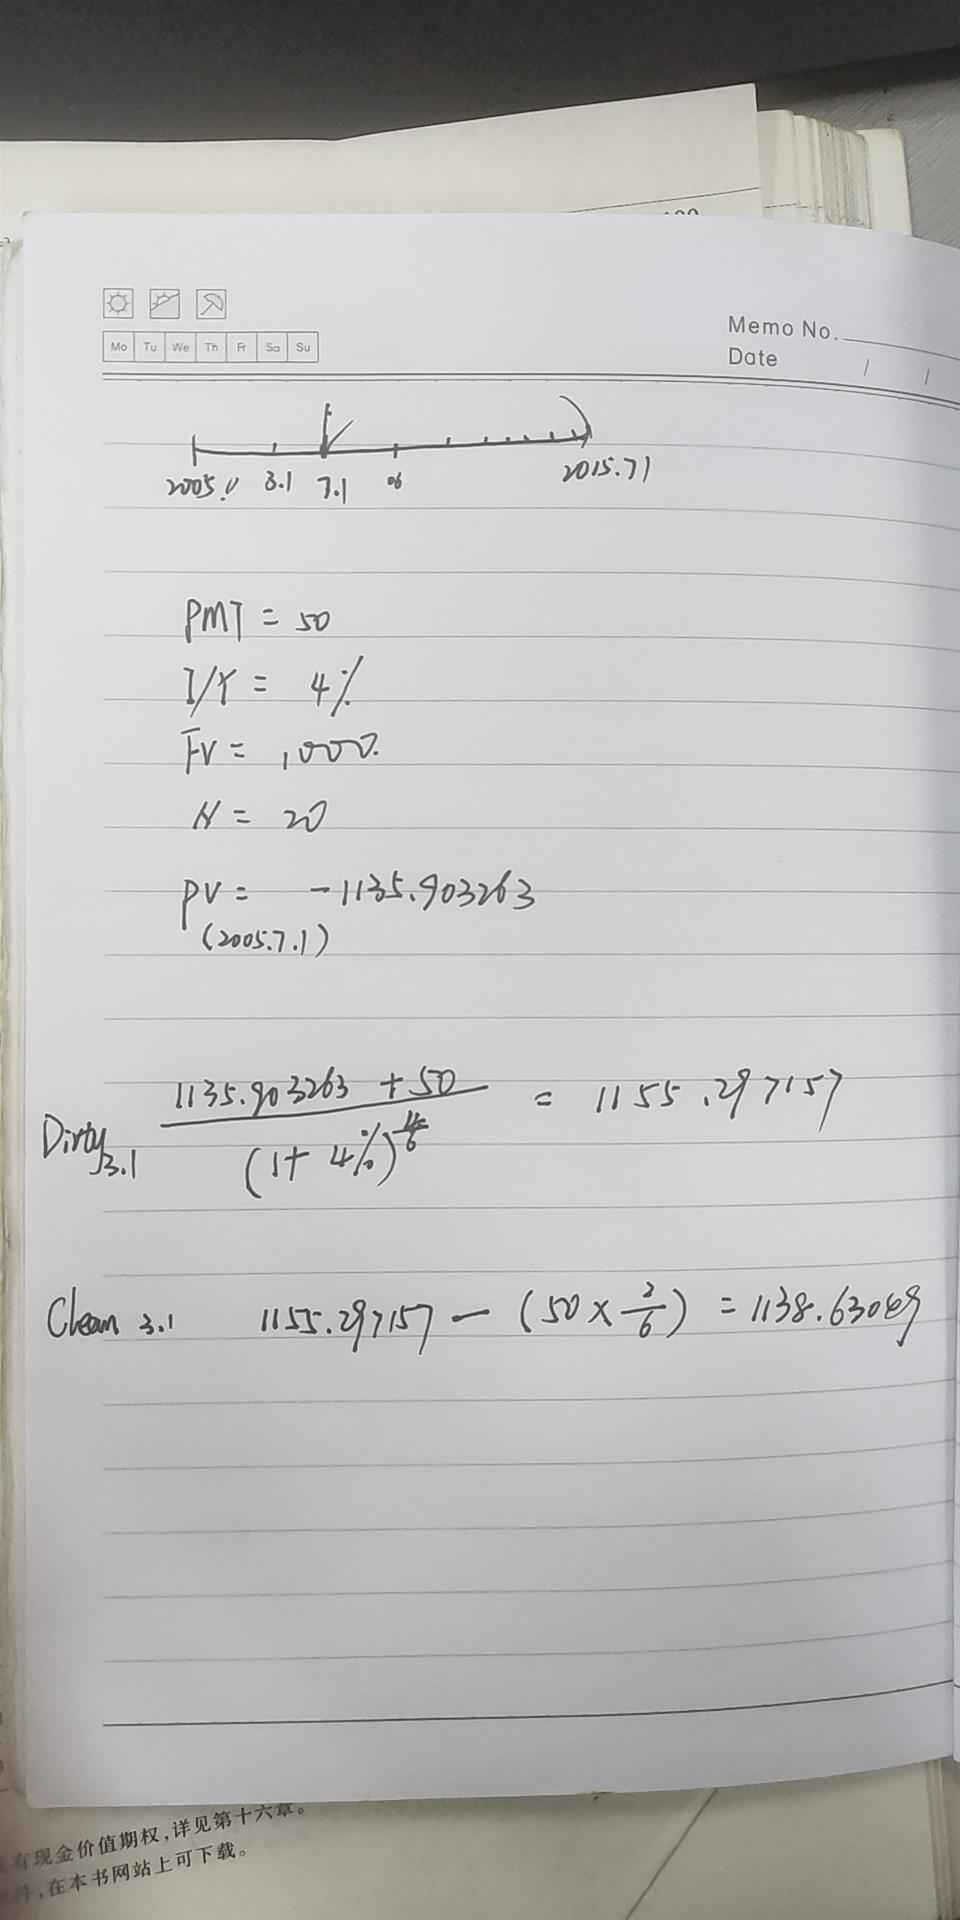 Memo No.
Mo Tu We Th Fr Sa Su
Date / /
2005.1 3.1 7.1 06 2015.71
PMT = 50
I/Y = 4%
FV = 1000.
N = 20
PV = -1135.903263
(2005.7.1)
Dirty 3.1 (1135.903263 + 50) / (1+4%)^(4/6) = 1155.297157
Clean 3.1 1155.297157 - (50 × 2/6) = 1138.63049
有现金价值期权,详见第十六章。
件,在本书网站上可下载。